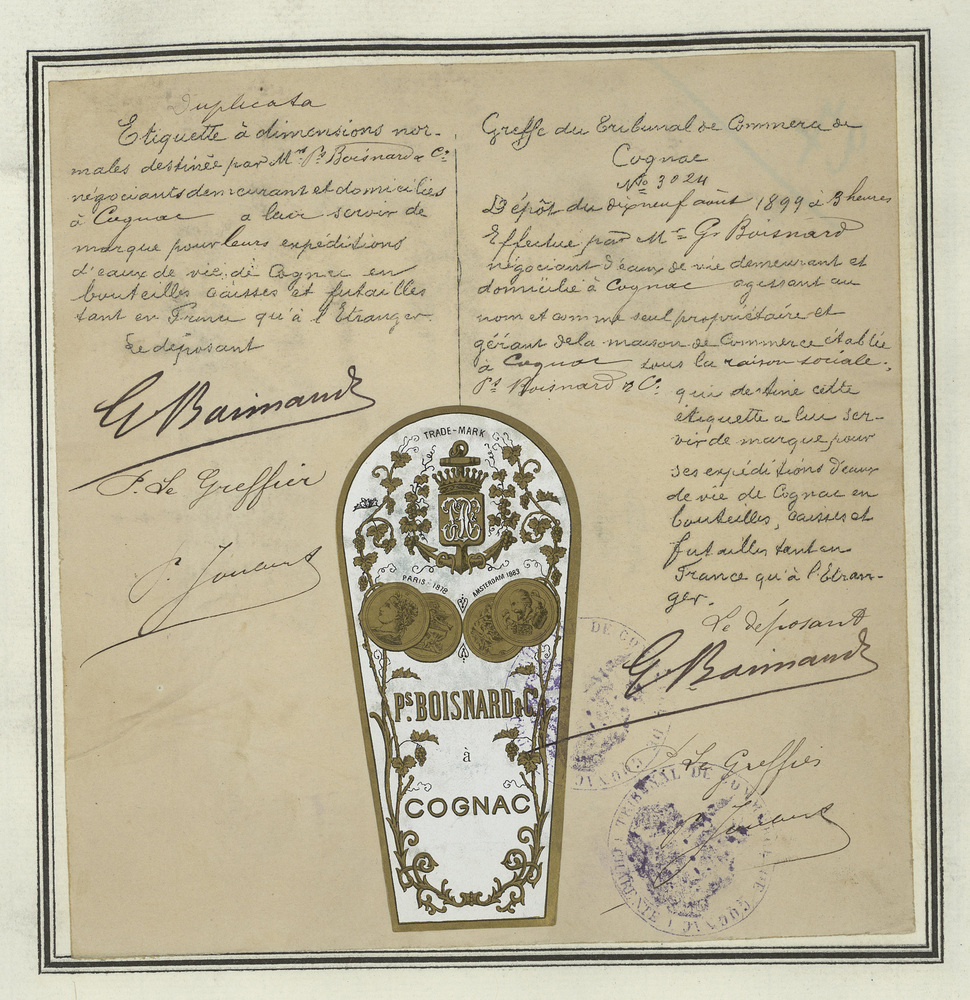 Duplicata
Etiquette à dimensions nor-
males destinée par Mrs Ps Boisnard & Cie
négociants demeurant et domiciliés
à Cognac a leur servir de
marque pour leurs expéditions
d'eaux de vie de Cognac en
bouteilles caisses et futailles
tant en France qu'à l'Etranger
Le déposant
G Boisnard
P. Le Greffier
Greffe du Tribunal de Commerce de
Cognac
No 3024
Dépôt du dix neuf août 1899 à 3 heures
Effectué par Mr G. Boisnard
négociant d'eaux de vie demeurant et
domicilié à Cognac agissant au
nom et comme seul propriétaire et
gérant de la maison de Commerce établie
à Cognac sous la raison sociale:
Ps Boisnard & Cie qui destine cette
étiquette a lui ser-
vir de marque pour
ses expéditions d'eaux
de vie de Cognac en
bouteilles, caisses et
futailles tant en
France qu'à l'Etran-
ger.
Le déposant
G Boisnard
P. Le Greffier
TRADE-MARK
PARIS-1878
AMSTERDAM 1883
Ps. BOISNARD & C.
à
COGNAC
DE CO
TRIBUNAL DE COMMERCE DE COGNAC
CHARENTE